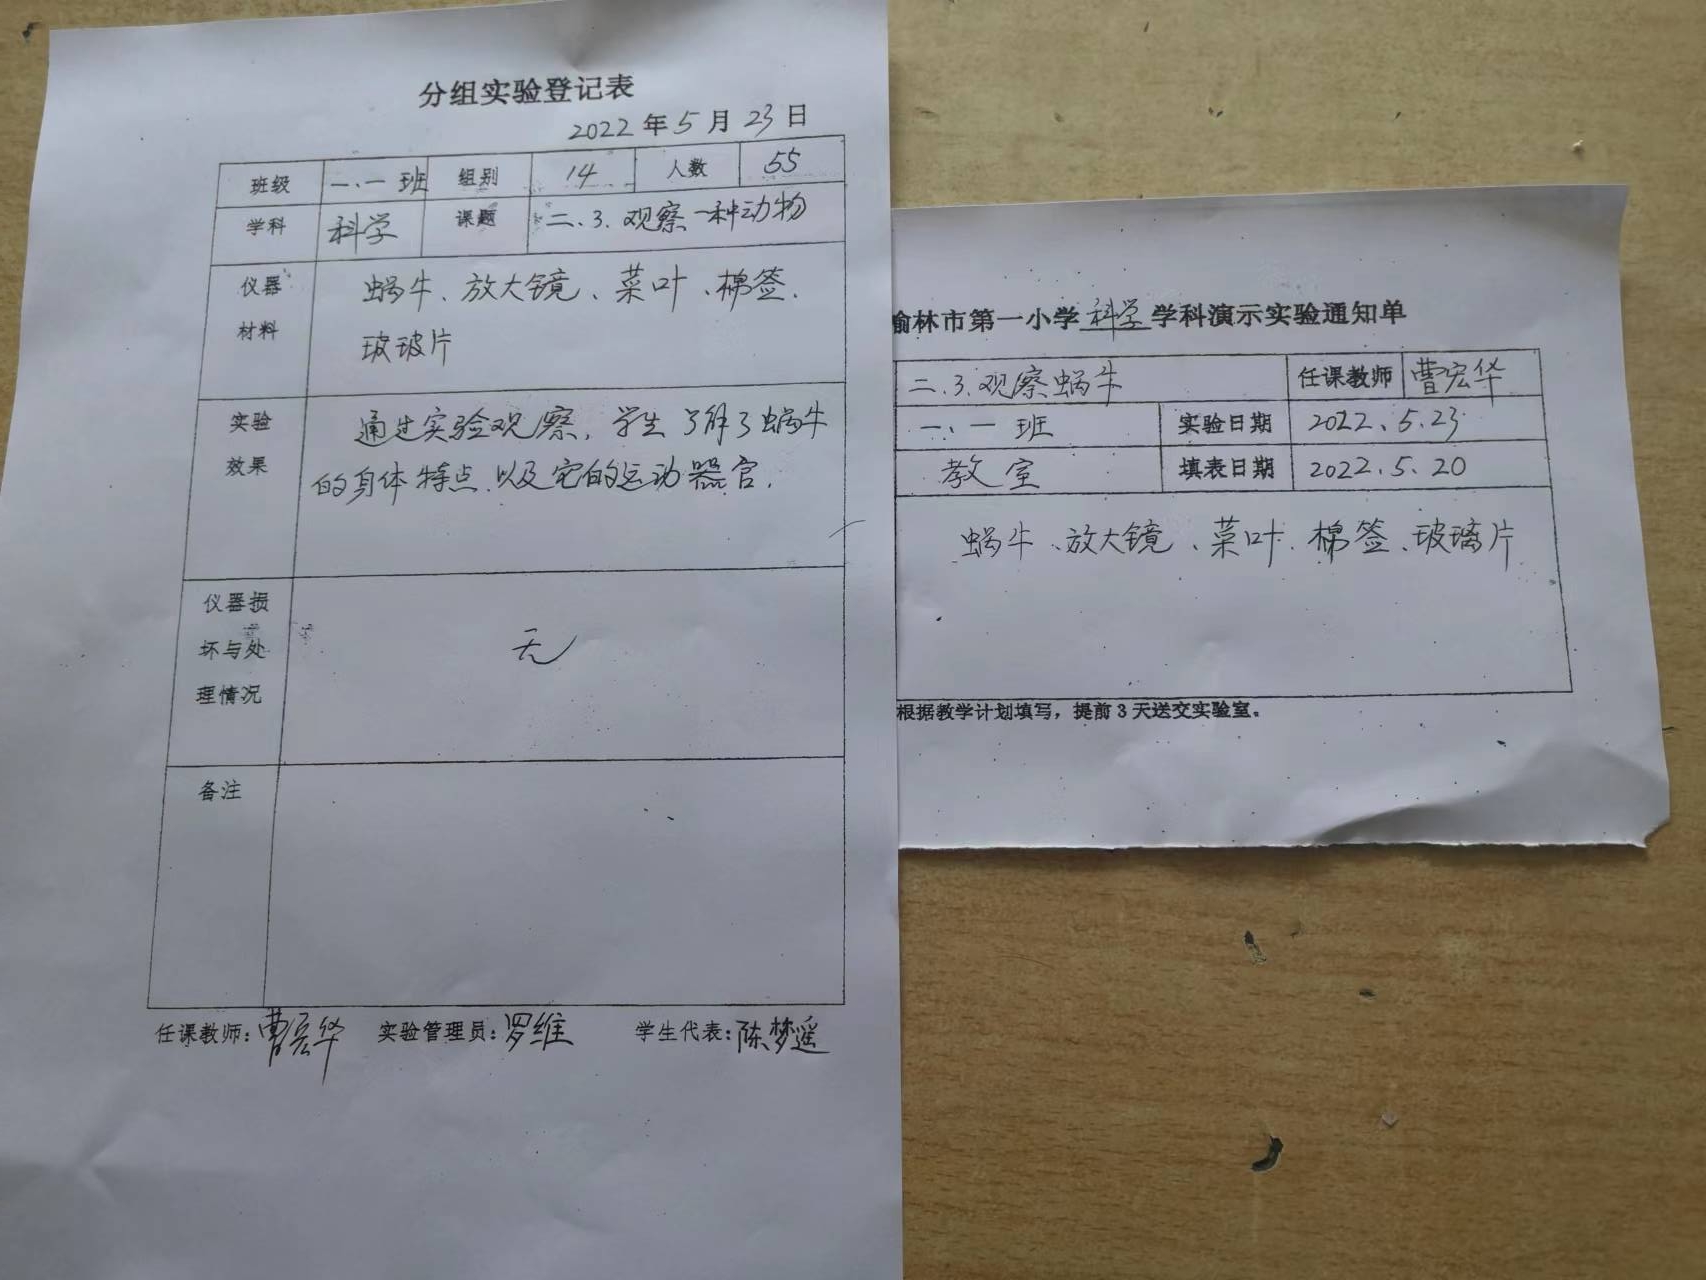 分组实验登记表
2022年5月23日
班级 一.一班 组别 14 人数 55
学科 科学 课题 二、3.观察一种动物
仪器材料 蜗牛、放大镜、菜叶、棉签、
玻玻片
实验效果 通过实验观察,学生了解了蜗牛
的身体特点、以及它的运动器官.
仪器损坏与处理情况 无
备注
任课教师:曹宏华 实验管理员:罗维 学生代表:陈梦遥
榆林市第一小学科学学科演示实验通知单
二.3.观察蜗牛 任课教师 曹宏华
一、一班 实验日期 2022.5.23
教室 填表日期 2022.5.20
蜗牛、放大镜、菜叶、棉签、玻璃片
根据教学计划填写,提前3天送交实验室。